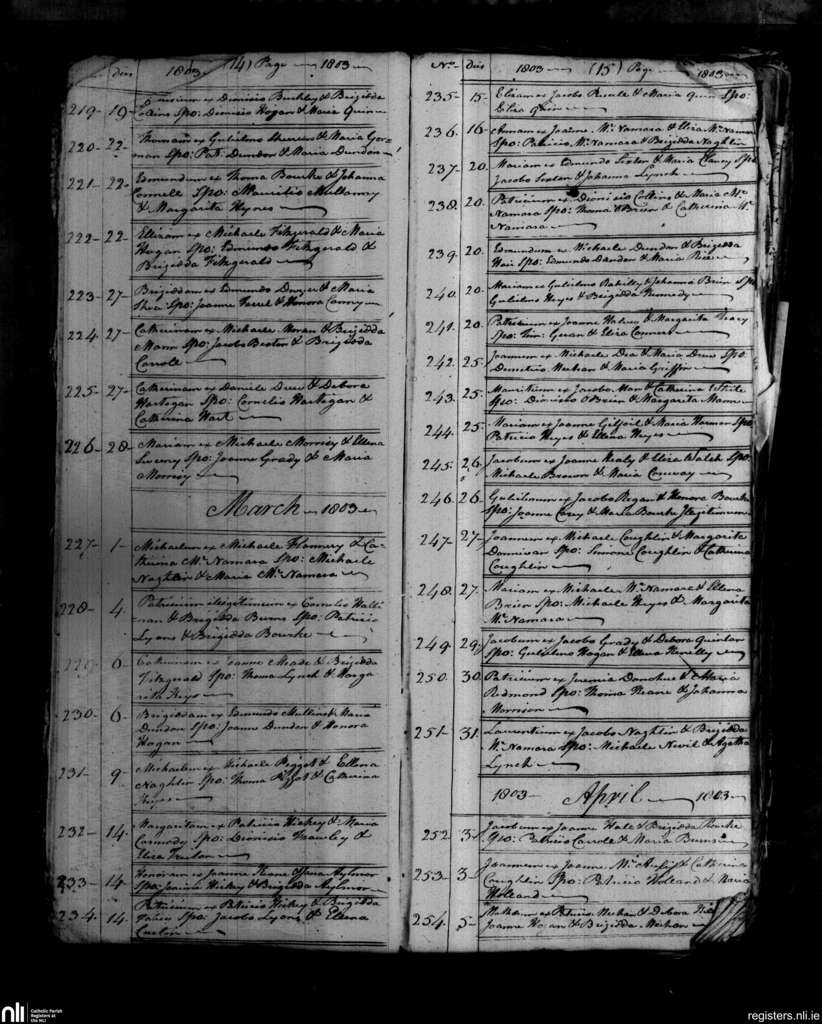 dies 1803 (14) Page 1803
219 - 19 - ex Dionisio Buckley & Brigidda
Collins Spo: Dionisio Hogan & Maria Quin
220 - 22 - Thomam ex Gulielmo & Maria Gor-
man Spo: Pat: Dundon & Maria Dundon
221 - 22 - Edmundum ex Thoma Bourke & Johanna
Connell Spo: Mauritio Mullanny
& Margarita Hynes
222 - 22 - Elizam ex Michaele Fitzgerald & Maria
Hogan Spo: Edmundo Fitzgerald &
Brigidda Fitzgerald
223 - 27 - Brigiddam ex Edmundo Dwyer & Maria
Shea Spo: Joanne Farrel & Honora Conry
224 - 27 - Catherinam ex Michaele Moran & Brigidda
Mann Spo: Jacobo Beston & Brigidda
Carroll
225 - 27 - Catherinam ex Daniele Drew & Debora
Hartegan Spo: Cornelio Hartegan &
Catherina Hart
226 - 28 - Mariam ex Michaele Morrisy & Ellena
Sweeny Spo: Joanne Grady & Maria
Morrisy
March 1803
227 - 1 - Michaelem ex Michaele Flannery & Ca-
therina Mc Namara Spo: Michaele
Naghlin & Maria Mc Namara
228 - 4 Patricium illegitimum ex Cornelio Halli
nan & Brigidda Burns Spo: Patricio
Lyons & Brigidda Bourke
229 - 6 Catherinam ex Joanne Meade & Brigidda
Fitzgerald Spo: Thoma Lynch & Marga
rita Keys
230 - 6 - Brigiddam ex Edmundo & Maria
Dundon Spo: Joanne Dundon & Honora
Hogan
231 - 9 - Michaelem ex Michaele Peggot & Ellena
Naghlin Spo: Thoma & Catherina
Keyes
232 - 14. Margaritam ex Patricio Hickey & Maria
Carmody Spo: Dionisio Frawley &
Eliza
233 - 14 Honoram ex Joanne Keane & Jana Aylmor
Spo: Joanne Hickey & Brigidda Aylmor
234. 14. Patricium ex Patricio Hickey & Brigidda
Spo: Jacobo Lyons & Ellena
No. dies 1803 (15) Page 1803
235 - 15 - Elizam ex Jacobo & Maria Quin Spo:
Eliza Quin
236. 16 - Annam ex Joanne Mc Namara & Eliza Mc Namara
Spo: Patricio Mc Namara & Brigidda Naghlin
237 - 20. Mariam ex Edmundo Sexton & Maria Clancy Spo
Jacobo Sexton & Johanna Lynch
238. 20. Patricium ex Dionisio Collins & Maria Mc
Namara Spo: Thoma O Brien & Catherina Mc
Namara
239. 20. Edmundum ex Michaele Dundon & Brigidda
Spo: Edmundo Dundon & Maria
240. 20. Mariam ex Gulielmo Rahilly & Johanna Brien Spo
Gulielmo Heyes & Brigidda Kennedy
241. 20. Patricium ex Joanne & Margarita
Spo: & Eliza Connors
242. 25. Joannem ex Michaele Dea & Maria Drew Spo
Demetrio Meehan & Maria Griffin
243. 25. Mauritium ex Jacobo Man & Catherina White
Spo: Dionisio O Brien & Margarita Mann
244. 25. Mariam ex Joanne Gilfoil & Maria Harmon Spo
Patricio Heyes & Ellena Heyes
245. 26. Jacobum ex Joanne Healy & Eliza Walsh Spo
Michaele Brown & Maria Conway
246. 26. Gulielmum ex Jacobo Regan & Honora Bourke
Spo: Joanne Carey & Maria Bourke Illegitimum
247 - 27 - Joannem ex Michaele Coughlin & Margarita
Donnivan Spo: Simone Coughlin & Catherina
Coughlin
248. 27. Mariam ex Michaele Mc Namara & Ellena
Brien Spo: Michaele Heyes & Margarita
Mc Namara
249. 29. Jacobum ex Jacobo Grady & Debora Quinlan
Spo: Gulielmo Hogan & Ellena
250. 30. Patricium ex Jeremia Donohue & Maria
Redmond Spo: Thoma Keane & Johanna
Morrison
251 - 31. Laurentium ex Jacobo Naghlin & Brigidda
Mc Namara Spo: Michaele Nevil & Agatha
Lynch
1803 April 1803
252. 3. Jacobum ex Joanne Hall & Brigidda Rourke
Spo: Patricio Carroll & Maria
253. 3 - Joannem ex Joanne & Catherina
Coughlin Spo: Patricio Holland & Maria
Holland
254. 5 - ex Patricio Meehan & Debora
Joanne Hogan & Brigidda Meehan
nli
Catholic Parish
Registers at
the NLI
registers.nli.ie